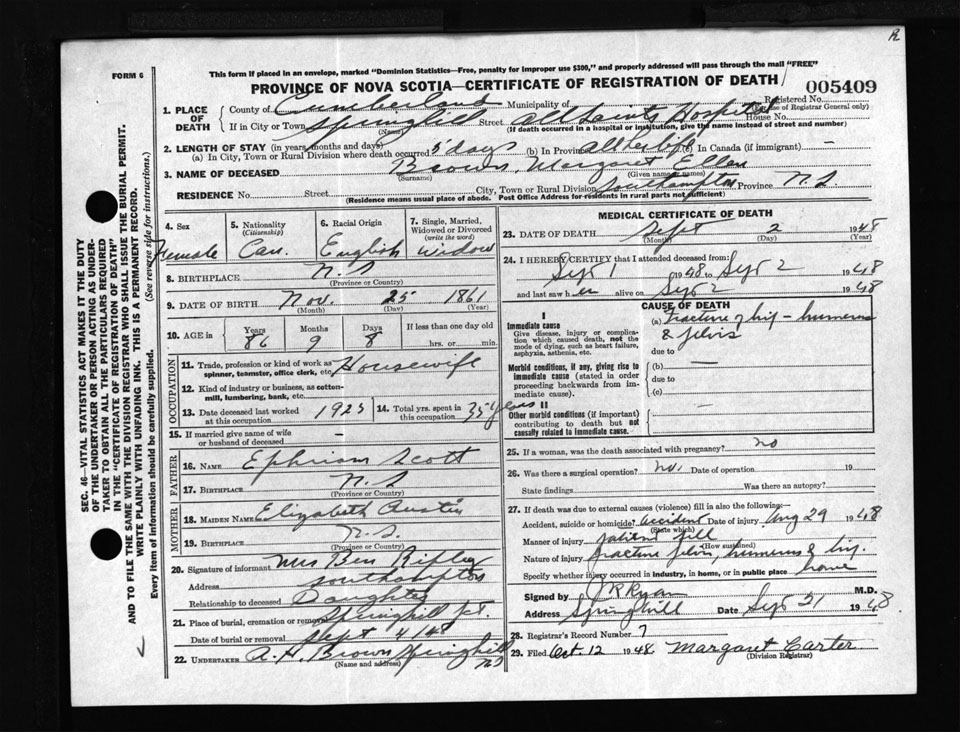 R
FORM 6
This form if placed in an envelope, marked "Dominion Statistics—Free, penalty for improper use $300," and properly addressed will pass through the mail "FREE"
PROVINCE OF NOVA SCOTIA—CERTIFICATE OF REGISTRATION OF DEATH
005409
1. PLACE OF DEATH
County of Cumberland Municipality of Registered No.
(For use of Registrar General only)
If in City or Town Springhill Street All Saints Hospital House No.
(Name) (If death occurred in a hospital or institution, give the name instead of street and number)
2. LENGTH OF STAY (in years, months and days)
(a) In City, Town or Rural Division where death occurred 5 days (b) In Province all her life (c) In Canada (if immigrant) —
3. NAME OF DECEASED Brown, Margaret Ellen
(Surname) (Given name or names)
RESIDENCE No. Street City, Town or Rural Division Southampton Province N.S.
(Residence means usual place of abode. Post Office Address for residents in rural parts not sufficient)
4. Sex Female
5. Nationality (Citizenship) Can.
6. Racial Origin English
7. Single, Married, Widowed or Divorced (write the word) Widow
8. BIRTHPLACE N.S
(Province or Country)
9. DATE OF BIRTH Nov. 25 1861
(Month) (Day) (Year)
10. AGE in Years Months Days If less than one day old
86 9 8 hrs. or min.
OCCUPATION
11. Trade, profession or kind of work as spinner, teamster, office clerk, etc. Housewife
12. Kind of industry or business, as cotton-mill, lumbering, bank, etc.
13. Date deceased last worked at this occupation 1925
14. Total yrs. spent in this occupation 35 years
15. If married give name of wife or husband of deceased —
FATHER
16. NAME Ephriam Scott
17. BIRTHPLACE N.S
(Province or Country)
MOTHER
18. MAIDEN NAME Elizabeth Austin
19. BIRTHPLACE N.S.
(Province or Country)
20. Signature of informant Mrs Ben Ripley
Address Southampton
Relationship to deceased Daughter
21. Place of burial, cremation or removal Springhill Jct.
Date of burial or removal Sept 4/48
22. UNDERTAKER A. H. Brown Springhill NS
(Name and address)
MEDICAL CERTIFICATE OF DEATH
23. DATE OF DEATH Sept 2 1948
(Month) (Day) (Year)
24. I HEREBY CERTIFY that I attended deceased from:
Sept 1 1948 to Sept 2 1948
and last saw her alive on Sept 2 1948
CAUSE OF DEATH
I
Immediate cause
Give disease, injury or complication which caused death, not the mode of dying, such as heart failure, asphyxia, asthenia, etc.
(a) Fracture of hip - humerus & pelvis
due to
Morbid conditions, if any, giving rise to immediate cause (stated in order proceeding backwards from immediate cause).
(b) —
due to
(c)
II
Other morbid conditions (if important) contributing to death but not causally related to immediate cause.
—
25. If a woman, was the death associated with pregnancy? no
26. Was there a surgical operation? no. Date of operation 19
State findings Was there an autopsy?
27. If death was due to external causes (violence) fill in also the following:
Accident, suicide or homicide? accident Date of injury Aug 29 1948
(State which)
Manner of injury patient fell
(How sustained)
Nature of injury fracture pelvis, humerus & hip.
Specify whether injury occurred in industry, in home, or in public place home
Signed by J R Ryan M.D.
Address Springhill Date Sept 21 1948
28. Registrar's Record Number 7
29. Filed Oct. 12 1948 Margaret Carter
(Division Registrar)
SEC. 46—VITAL STATISTICS ACT MAKES IT THE DUTY
OF THE UNDERTAKER OR PERSON ACTING AS UNDER-
TAKER TO OBTAIN ALL THE PARTICULARS REQUIRED
IN THE "CERTIFICATE OF REGISTRATION OF DEATH"
AND TO FILE THE SAME WITH THE DIVISION REGISTRAR WHO SHALL ISSUE THE BURIAL PERMIT.
WRITE PLAINLY WITH UNFADING INK. THIS IS A PERMANENT RECORD.
Every item of information should be carefully supplied. (See reverse side for instructions.)